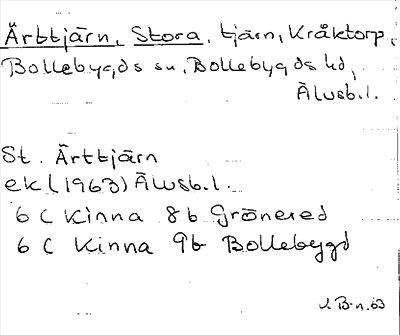 Ärttjärn, Stora, tjärn, Kråktorp,
Bollebygds sn, Bollebygds hd,
Älvsb.l.
St. Ärttjärn
ek (1963) Älvsb.l.
6 C Kinna 8b Grönered
6 C Kinna 9b Bollebygd
J. B-n. 63